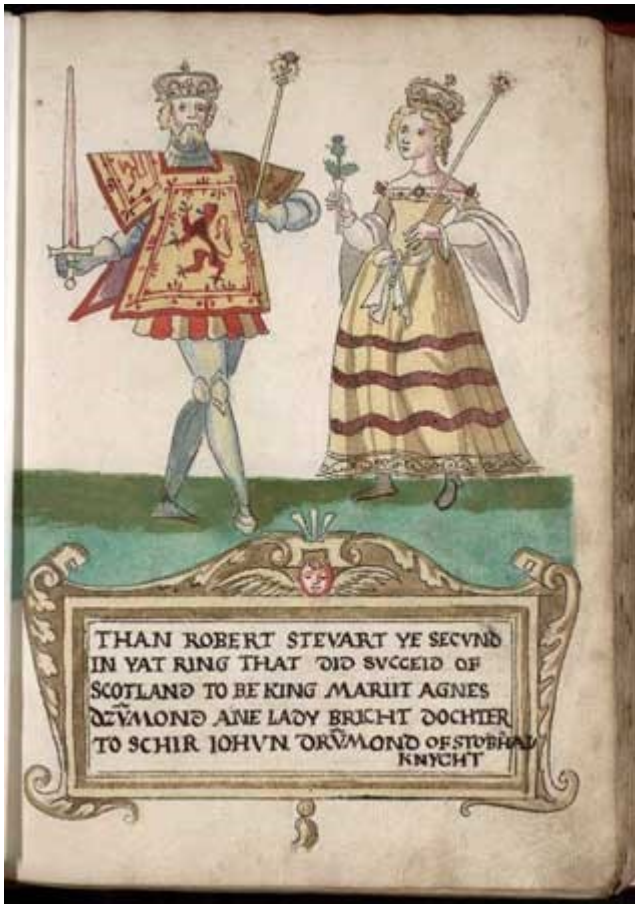 THAN ROBERT STEVART YE SECVND
IN YAT RING THAT DID SVCCEID OF
SCOTLAND TO BE KING MARIIT AGNES
DZVMOND ANE LADY BRICHT DOCHTER
TO SCHIR IOHVN DRVMOND OF STOBHAL
KNYCHT